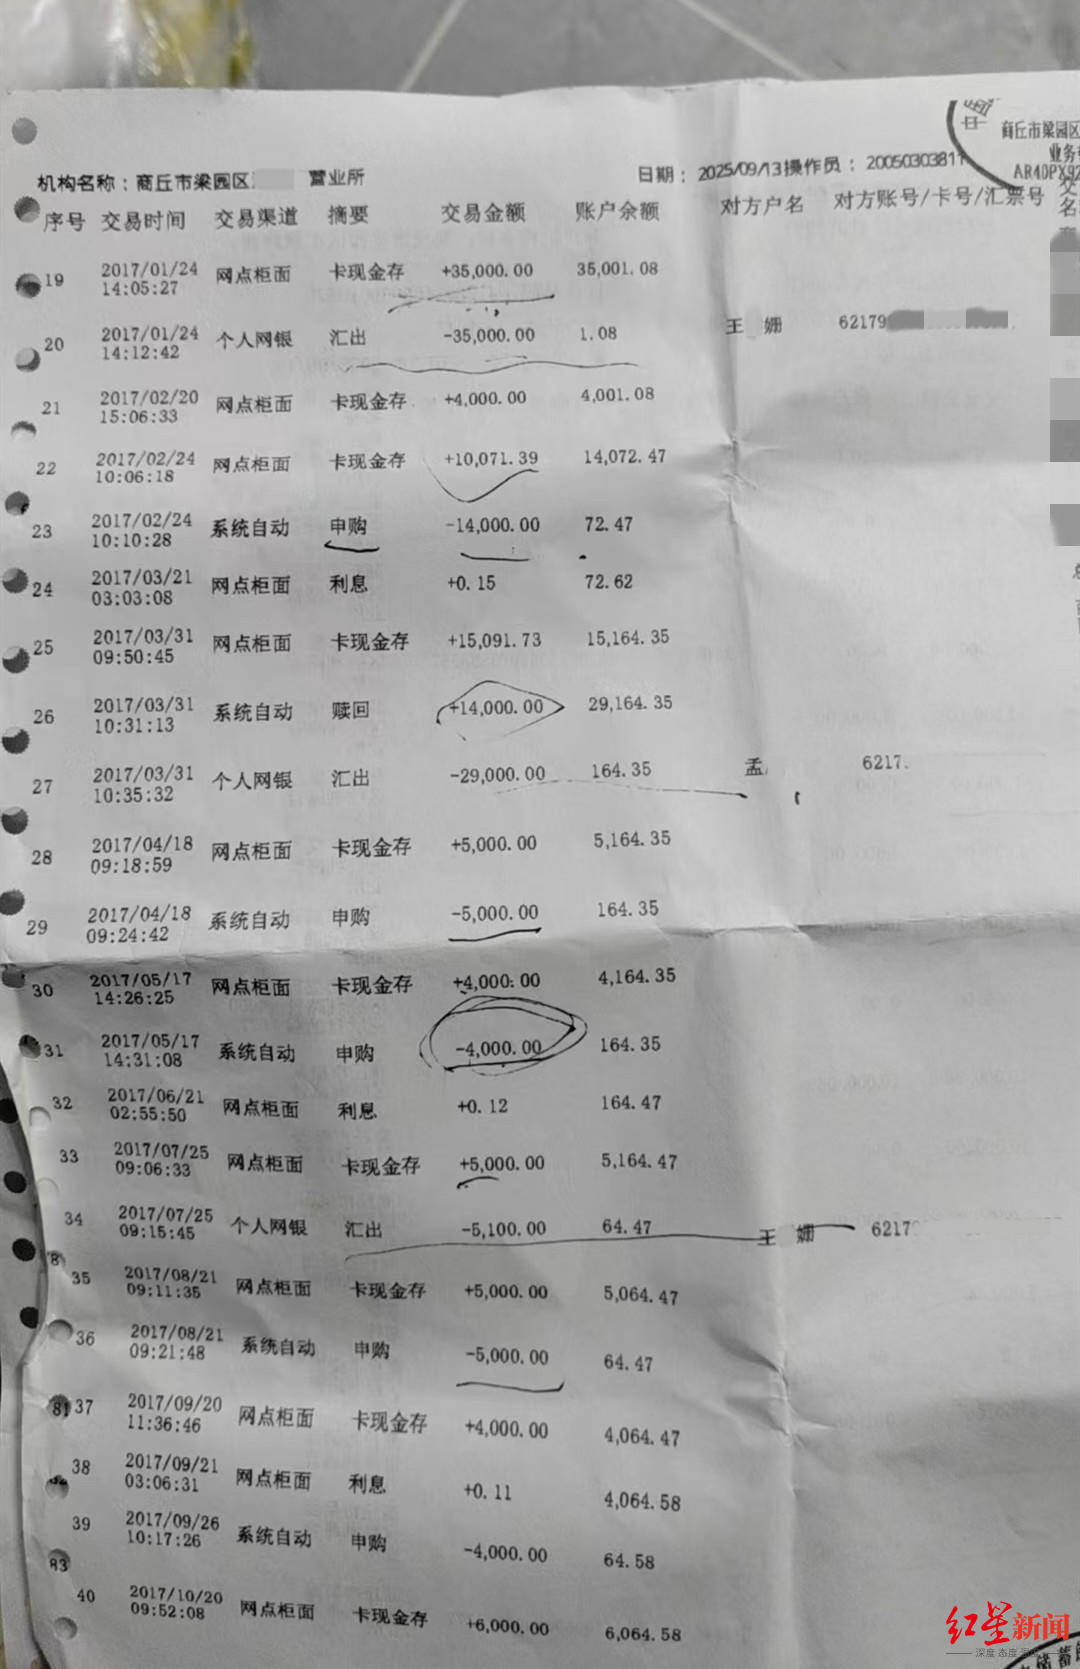 商丘市梁园区
业务
AR40PX92
机构名称：商丘市梁园区 营业所 日期：2025/09/13 操作员：20050303811
序号 交易时间 交易渠道 摘要 交易金额 账户余额 对方户名 对方账号/卡号/汇票号
19 2017/01/24 14:05:27 网点柜面 卡现金存 +35,000.00 35,001.08
20 2017/01/24 14:12:42 个人网银 汇出 -35,000.00 1.08 王 姗 62179
21 2017/02/20 15:06:33 网点柜面 卡现金存 +4,000.00 4,001.08
22 2017/02/24 10:06:18 网点柜面 卡现金存 +10,071.39 14,072.47
23 2017/02/24 10:10:28 系统自动 申购 -14,000.00 72.47
24 2017/03/21 03:03:08 网点柜面 利息 +0.15 72.62
25 2017/03/31 09:50:45 网点柜面 卡现金存 +15,091.73 15,164.35
26 2017/03/31 10:31:13 系统自动 赎回 +14,000.00 29,164.35
27 2017/03/31 10:35:32 个人网银 汇出 -29,000.00 164.35 孟 6217
28 2017/04/18 09:18:59 网点柜面 卡现金存 +5,000.00 5,164.35
29 2017/04/18 09:24:42 系统自动 申购 -5,000.00 164.35
30 2017/05/17 14:26:25 网点柜面 卡现金存 +4,000.00 4,164.35
31 2017/05/17 14:31:08 系统自动 申购 -4,000.00 164.35
32 2017/06/21 02:55:50 网点柜面 利息 +0.12 164.47
33 2017/07/25 09:06:33 网点柜面 卡现金存 +5,000.00 5,164.47
34 2017/07/25 09:15:45 个人网银 汇出 -5,100.00 64.47 王 姗 6217
35 2017/08/21 09:11:35 网点柜面 卡现金存 +5,000.00 5,064.47
36 2017/08/21 09:21:48 系统自动 申购 -5,000.00 64.47
37 2017/09/20 11:36:46 网点柜面 卡现金存 +4,000.00 4,064.47
38 2017/09/21 03:06:31 网点柜面 利息 +0.11 4,064.58
39 2017/09/26 10:17:26 系统自动 申购 -4,000.00 64.58
40 2017/10/20 09:52:08 网点柜面 卡现金存 +6,000.00 6,064.58
81
83
红星新闻
深度 态度